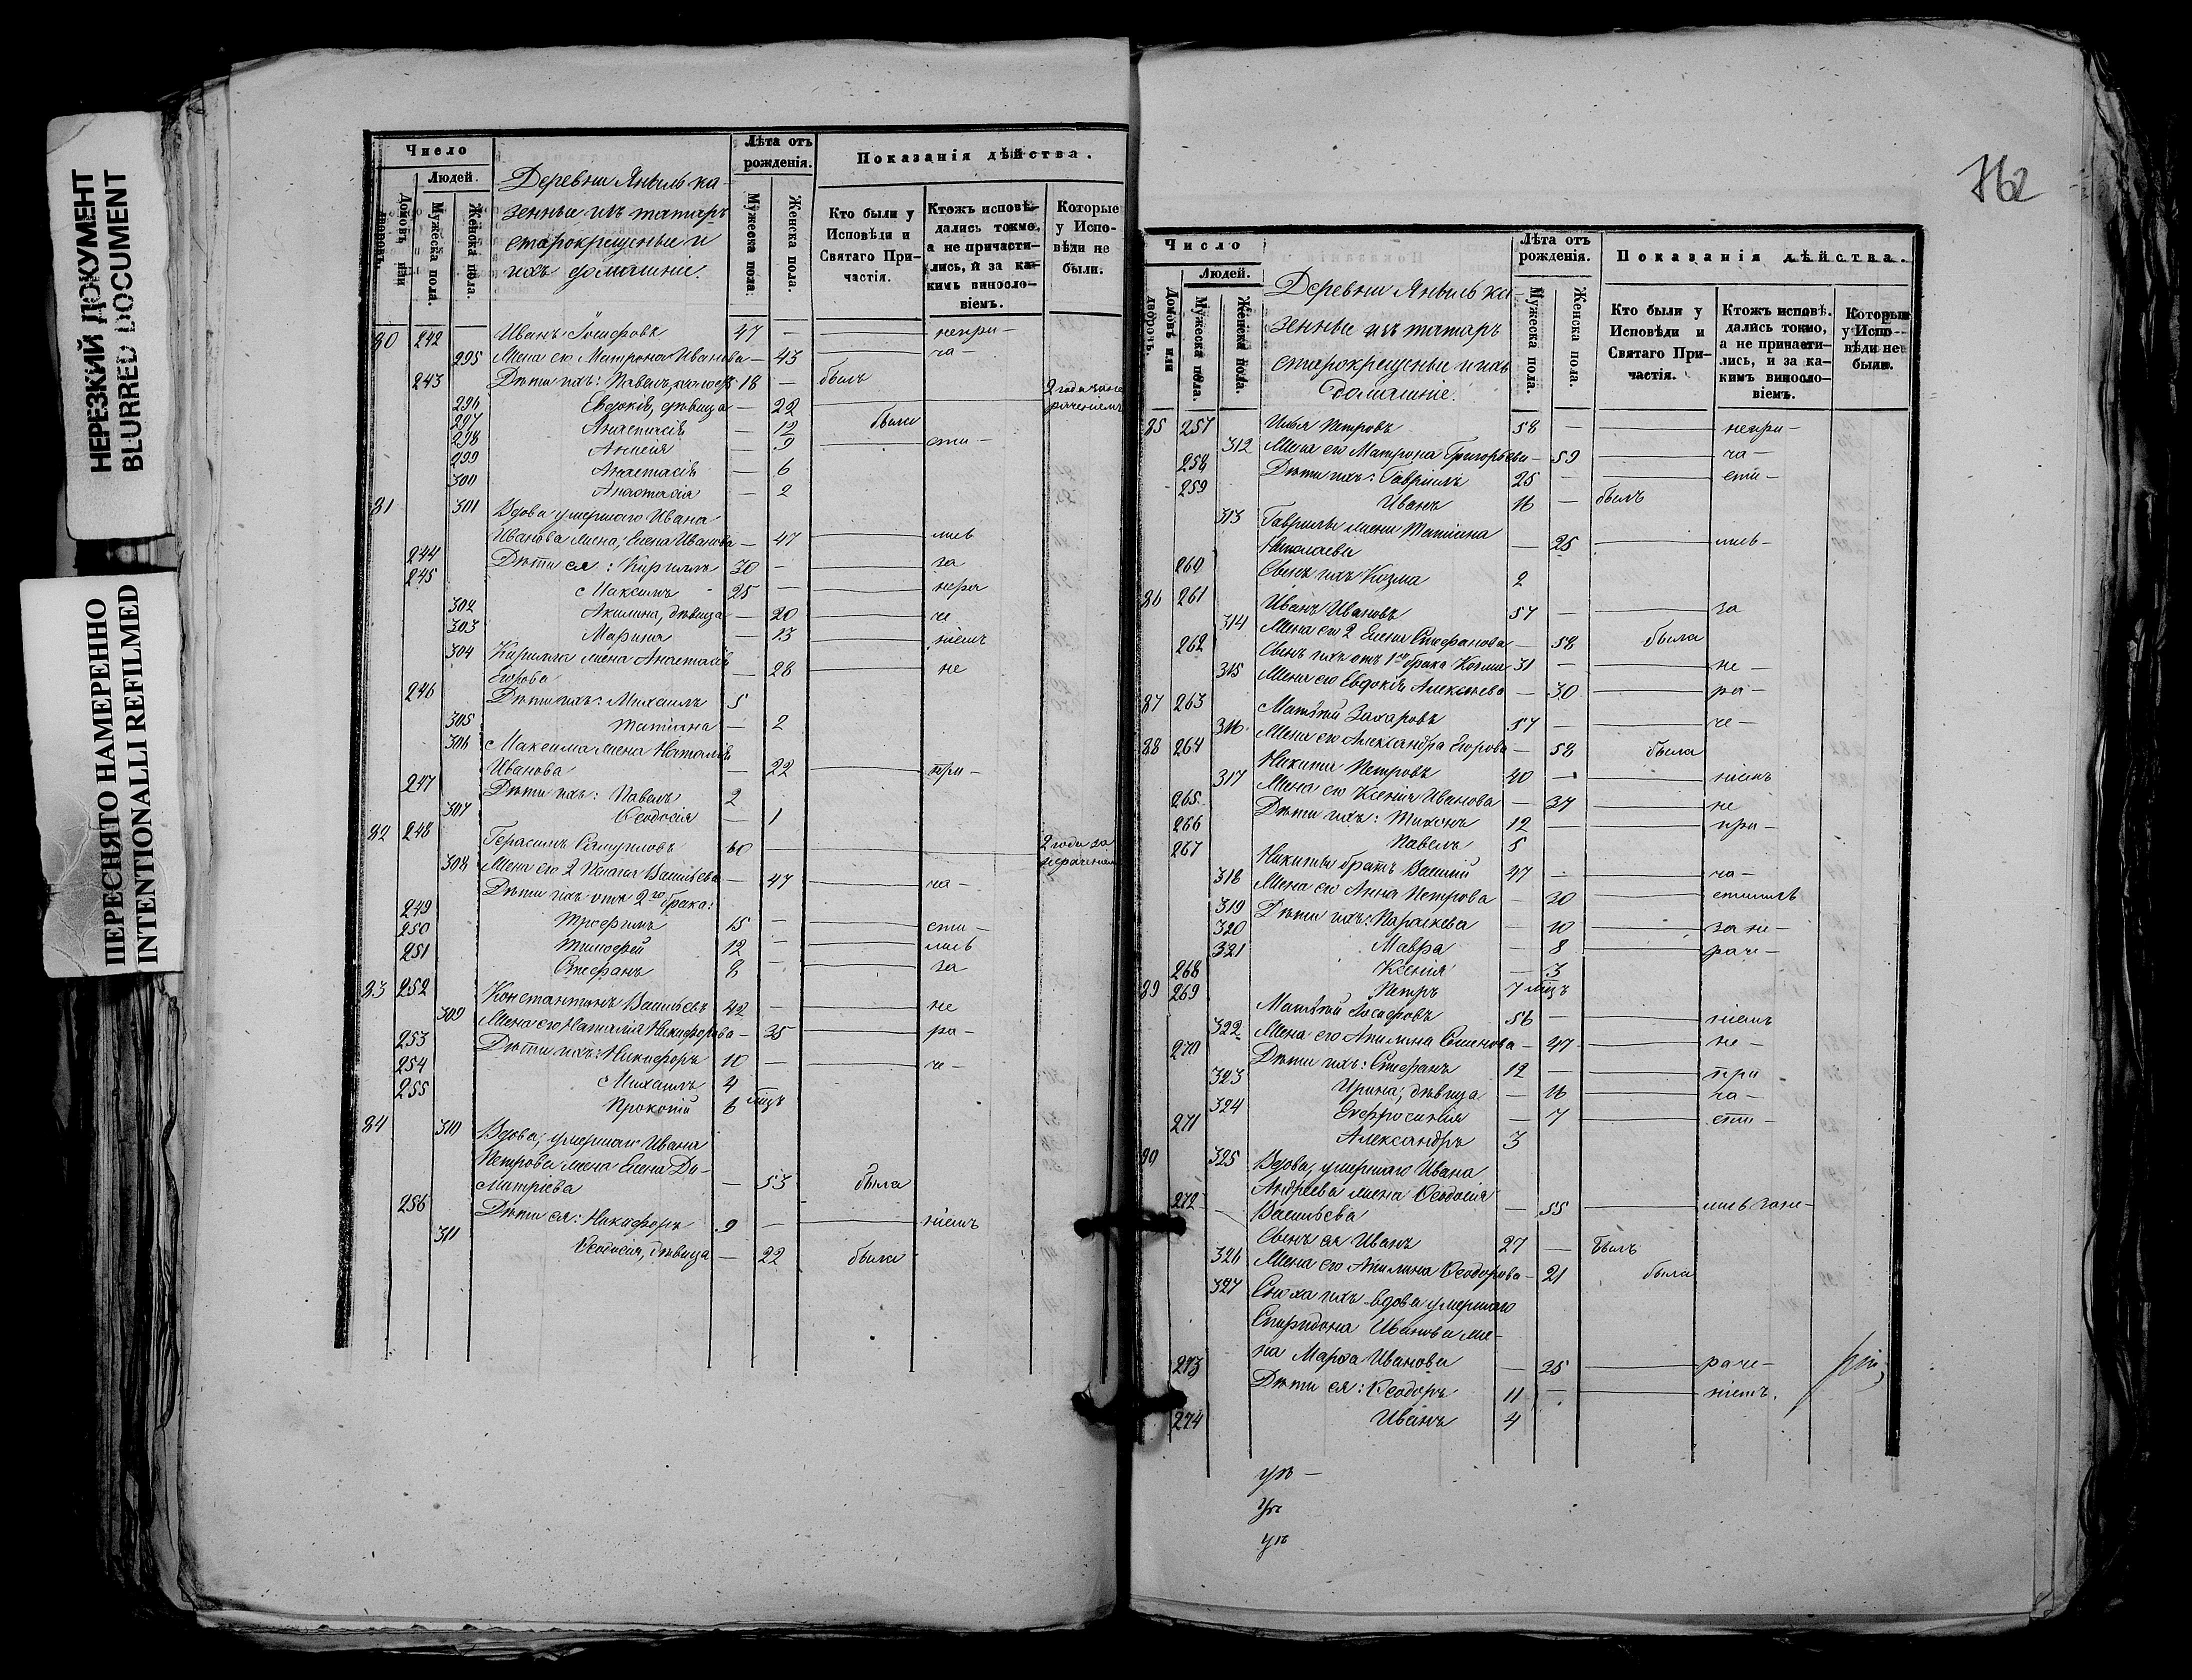 НЕРЕЗКИЙ ДОКУМЕНТ
BLURRED DOCUMENT
ПЕРЕСНЯТО НАМЕРЕННО
INTENTIONALLI REFILMED
Число
Людей.
Домовъ или дворовъ.
Мужеска пола.
Женска пола.
Деревни Янылъ ка-
зенные изъ татаръ
старокрещеные и
ихъ домашніе.
Лѣта отъ рожденія.
Мужеска пола.
Женска пола.
Показанія дѣйства.
Кто были у Исповѣди и Святаго Причастія.
Ктожъ исповѣ-
дались токмо,
а не причасти-
лись, и за ка-
кимъ виносло-
віемъ.
Которые
у Испо-
вѣди не
были.
80 242 Иванъ Іосифовъ 47 — непри-
295 Жена его Матрона Иванова — 43 ча-
243 Дѣти ихъ: Павелъ, холостъ 18 — былъ
296 Евдокія, дѣвица — 22 2 года за не раченіемъ
297 Анастасія — 12 были
298 Анисія — 9 сти-
299 Анастасія — 6
300 Анастасія — 2
81 301 Вдова умершаго Ивана
Иванова жена, Елена Иванова — 47 лись
244 Дѣти ея: Кириллъ 30 — за
245 Максимъ 25 — нера
302 Акилина, дѣвица — 20 че
303 Марина — 13 ніемъ
304 Кирилла жена Анастасія
Егорова — 28 не
246 Дѣти ихъ: Михаилъ 5
305 Татіана — 2
306 Максима жена Наталія
Иванова — 22 при-
247 Дѣти ихъ: Павелъ 2
307 Ѳеодосія — 1
82 248 Герасимъ Самуиловъ 60 — 2 года за нераченіемъ
308 Жена его 2 Васильева — 47 ча-
Дѣти ихъ отъ 2го брака:
249 Трофимъ 15 — сти-
250 Тимофей 12 — лись
251 Стефанъ 8 — за
83 252 Константинъ Васильевъ 42 — не
309 Жена его Наталія Никифорова — 35 ра-
253 Дѣти ихъ: Никифоръ 10 — че-
254 Михаилъ 4
255 Прокопій 6 мцъ
84 310 Вдова, умершаго Ивана
Петрова жена Елена Ди-
митріева — 53 была
256 Дѣти ея: Никифоръ 9 — ніемъ
311 Ѳеодосія, дѣвица — 22 была
762
Число
Людей.
Домовъ или дворовъ.
Мужеска пола.
Женска пола.
Деревни Янылъ ка-
зенные изъ татаръ
старокрещеные и ихъ
домашніе.
Лѣта отъ рожденія.
Мужеска пола.
Женска пола.
Показанія дѣйства.
Кто были у Исповѣди и Святаго Причастія.
Ктожъ исповѣ-
дались токмо,
а не причасти-
лись, и за ка-
кимъ виносло-
віемъ.
Которые
у Испо-
вѣди не
были.
85 257 Илья Петровъ 58 — непри-
312 Жена его Матрона Григорьева — 59 ча-
258 Дѣти ихъ: Гавріилъ 25 — сти-
259 Иванъ 16 — былъ
313 Гавріила жена Татіана
Николаева — 25 лись-
260 Сынъ ихъ Козма 2
86 261 Иванъ Ивановъ 57 — за
314 Жена его 2 Елена Стефанова — 58 была
262 Сынъ ихъ отъ 1го брака Козма 31 — не-
315 Жена его Евдокія Алексѣева — 30 ра-
87 263 Матѳей Захаровъ 57 — че-
316 Жена его Александра Егорова — 58 была
88 264 Никита Петровъ 40 — ніемъ
317 Жена его Ксенія Иванова — 37 не
265 Дѣти ихъ: Тихонъ 12 — при-
266 Павелъ 5
267 Никиты братъ Василій 47 — ча-
318 Жена его Анна Петрова — 30 стились
319 Дѣти ихъ: Параскева — 10 за не-
320 Мавра — 8 раче-
321 Ксенія — 3
268 Петръ 7 мцъ
89 269 Матѳей Іосифовъ 56 — ніемъ
322 Жена его Акилина Семенова — 47 не-
270 Дѣти ихъ: Стефанъ 12 — при
323 Ирина, дѣвица — 16 ча-
324 Евфросинія — 7 сти-
271 Александръ 3
90 325 Вдова, умершаго Ивана
Андреева жена Ѳеодосія
Васильева — 55 лись за не-
272 Сынъ ея Иванъ 27 — былъ
326 Жена его Акилина Ѳеодорова — 21 была
327 Сноха ихъ вдова умершаго
Спиридона Иванова же-
на Марѳа Иванова — 25 раче-
273 Дѣти ея: Ѳеодоръ 11 — ніемъ.
274 Иванъ 4